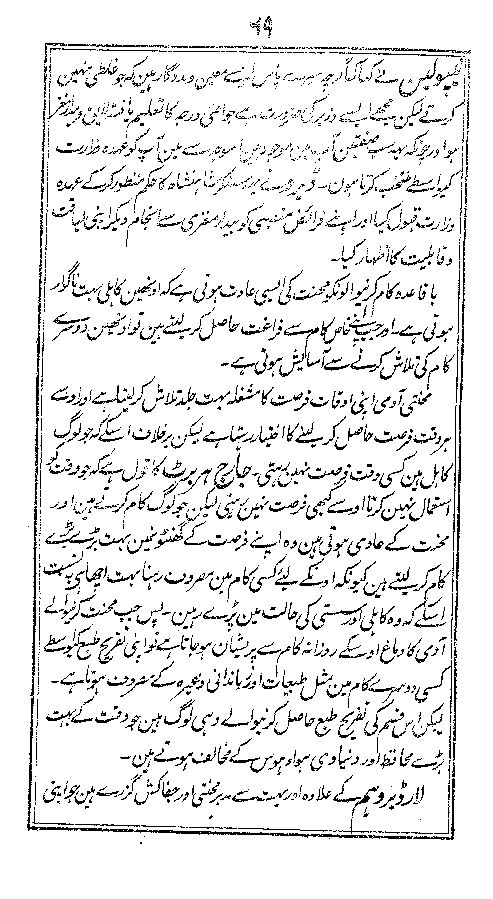 ۶۹
نیپولین نے کہا کہ اگرچہ میرے پاس ایسے معین و مددگار ہین کہ جو غلطی نہین
کرتے لیکن مجھے ایسے وزیر کی ضرورت ہے جو اعلیٰ درجہ کا تعلیم یافتہ لایق و بیدار مغز
ہو اور چونکہ یہ سب صفتین آپ مین موجود ہین اسوجہ سے مین آپ کو عہدہ وزارت
کیواسطے منتخب کرتا ہون۔ ڈیرو نے یہ سنکر شاہنشاہ کا حکم منظور کر کے عہدہ
وزارت قبول کیا اور اپنے فرائض منصبی کو بیدار مغزی سے انجام دیکر اپنی لیاقت
و قابلیت کا اظہار کیا۔
با قاعدہ کام کرنیوالونکو محنت کی ایسی عادت ہوتی ہے کہ اونھین کاہلی بہت ناگوار
ہوتی ہے۔ اور جب اپنے خاص کام سے فراغت حاصل کر لیتے ہین تو اونھین دوسرے
کام کی تلاش کرنے سے آسایش ہوتی ہے۔
محنتی آدمی اپنی اوقات فرصت کا مشغلہ بہت جلد تلاش کر لیتا ہے اور اوسے
ہر وقت فرصت حاصل کر لینے کا اختیار رہتا ہے لیکن برخلاف اسکے کہ جو لوگ
کاہل ہین کسی وقت فرصت نہین رہتی۔ جارج ہربرٹ کا قول ہے کہ جو وقت کو
استعمال نہین کرتا اوسے کبھی فرصت نہین رہتی لیکن جو لوگ کام کرتے ہین اور
محنت کے عادی ہوتی ہین وہ اپنے فرصت کے گھنٹو نمین بہت بڑے بڑے
کام کر لیتے ہین کیونکہ اونکے لئے کسی کام مین مصروف رہنا بہت اچھا ہی بہ نسبت
اسکے کہ وہ کاہلی اور سستی کی حالت مین پڑے رہین۔ پس جب محنت کرنیوالے
آدمی کا دماغ اوسکے روزانہ کام سے پریشان ہو جاتا ہے تو اپنی تفریح طبع کیواسطے
کسی دوسرے کام مین مثل طبعیات اور زباندانی وغیرہ کے مصروف ہوتا ہے۔
لیکن اس قسم کی تفریح طبع حاصل کرنیوالے وہی لوگ ہین جو وقت کے بہت
بڑے محافظ اور دنیاوی ہوا و ہوس کے مخالف ہوتے ہین۔
لارڈ بروہم کے علاوہ اور بہت سے مدبر محنتی اور جفاکش گزرے ہین جو اپنی